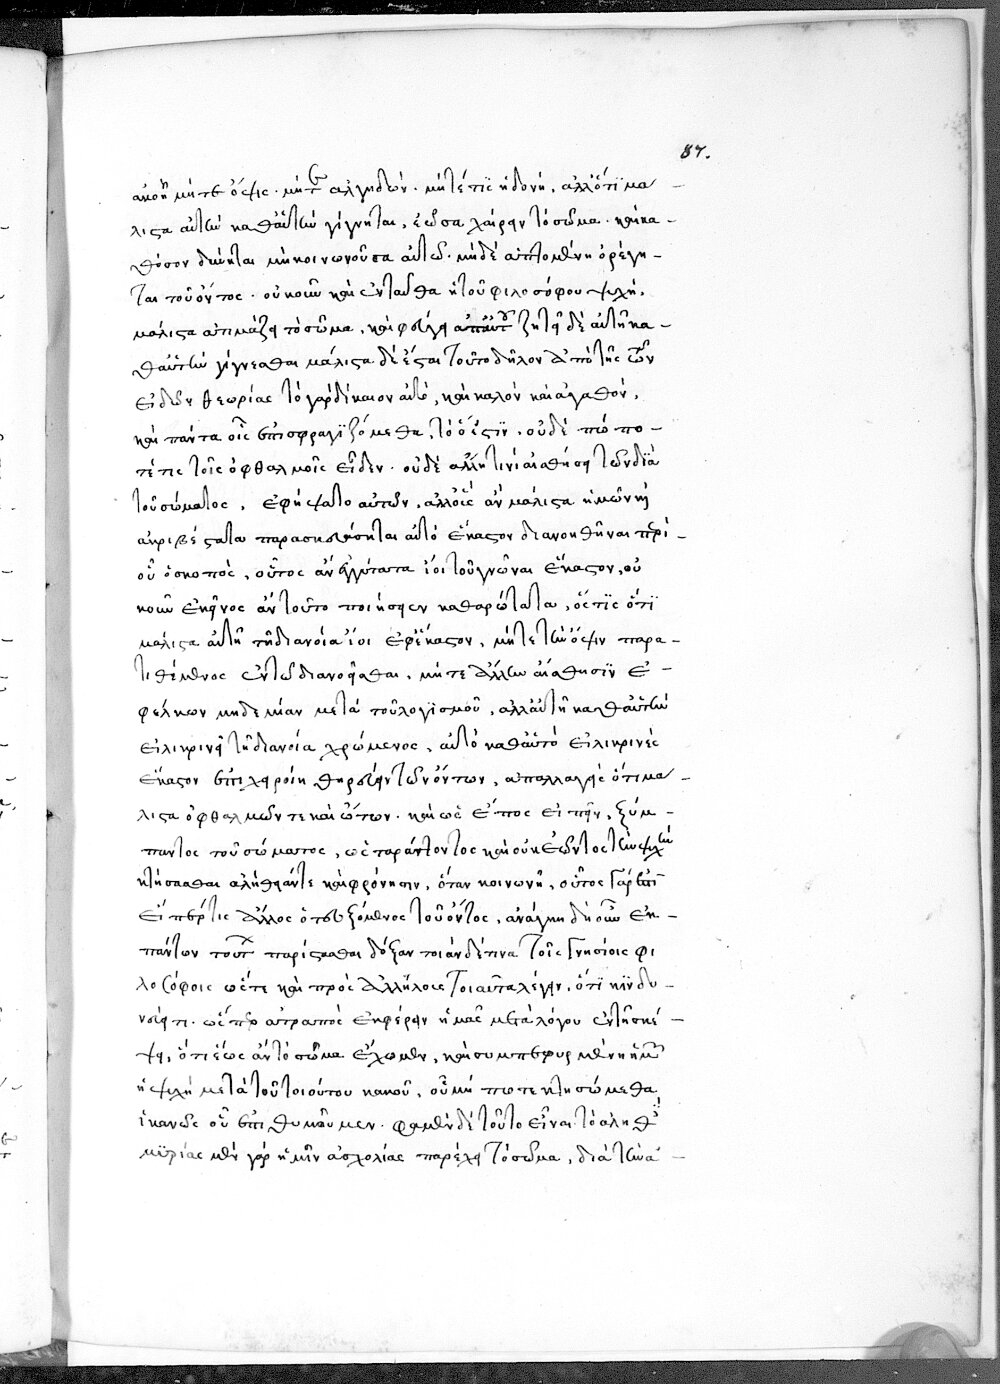 87.
ἀκοὴ μήτε ὄψις · μήτε ἀλγηδών · μήτέ τις ἡδονή, ἀλλ' ὅτι μα –
λιστα αὐτὴ καθ' αὑτὴν γίγνηται, ἐῶσα χαίρειν τὸ σῶμα · καὶ κα –
θόσον δύναται μὴ κοινωνοῦσα αὐτῷ · μηδὲ ἁπτομένη ὀρέγη –
ται τοῦ ὄντος · οὐκοῦν καὶ ἐνταῦθα ἡ τοῦ φιλοσόφου ψυχὴ,
μάλιστα ἀτιμάζει τὸ σῶμα, καὶ φεύγει ἀπ' αὐτοῦ ζητεῖ δὲ αὐτὴ κα –
θ' αὑτὴν γίγνεσθαι μάλιστα δὲ ἔσται τοῦτο δῆλον ἀπὸ τῆς τῶν
εἰδῶν θεωρίας τὸ γὰρ δίκαιον αὐτὸ, καὶ καλὸν καὶ ἀγαθόν,
καὶ πάντα οἷς ἐπισφραγιζόμεθα, τὸ ὅ ἐστιν, οὐδὲ πώ πο –
τέ τις τοῖς ὀφθαλμοῖς εἶδεν · οὐδὲ ἄλλῃ τινὶ αἰσθήσει τῶν διὰ
τοῦ σώματος, ἐφήψατο αὐτῶν, ἀλλ' ὃς ἂν μάλιστα ἡμῶν καὶ
ἀκριβέστατα παρασκευάσηται αὐτὸ ἕκαστον διανοηθῆναι περὶ –
οὗ ὁ σκοπὸς, οὗτος ἂν ἐγγύτατα ἴοι τοῦ γνῶναι ἕκαστον, οὐ
κοῦν ἐκεῖνος ἂν τοῦτο ποιήσειεν καθαρώτατα, ὅστις ὅτι
μάλιστα αὐτῇ τῇ διανοίᾳ ἴοι ἐφ' ἕκαστον, μήτε τὴν ὄψιν παρα –
τιθέμενος ἐν τῷ διανοεῖσθαι, μήτε ἄλλην αἴσθησιν ἐ –
φέλκων μηδεμίαν μετὰ τοῦ λογισμοῦ, ἀλλ' αὐτῇ καθ' αὑτὴν
εἰλικρινεῖ τῇ διανοίᾳ χρώμενος, αὐτὸ καθ' αὑτὸ εἰλικρινὲς
ἕκαστον ἐπιχειροίη θηρεύειν τῶν ὄντων, ἀπαλλαγεὶς ὅτι μα –
λιστα ὀφθαλμῶν τε καὶ ὤτων · καὶ ὡς ἔπος εἰπεῖν, ξύμ –
παντος τοῦ σώματος, ὡς ταράττοντος καὶ οὐκ ἐῶντος τὴν ψυχὴν
κτήσασθαι ἀλήθειάν τε καὶ φρόνησιν, ὅταν κοινωνῇ, οὗτος γάρ ἐστι
εἴπέρ τις ἄλλος ὁ τευξόμενος τοῦ ὄντος, ἀνάγκη δὴ οὖν ἐκ –
πάντων τούτων παρίστασθαι δόξαν τοιάνδέ τινα τοῖς γνησίοις φι
λοσόφοις ὥστε καὶ πρὸς ἀλλήλους τοιαῦτα λέγειν, ὅτι κινδυ –
νεύει τι · ὥσπερ ἀτραπὸς ἐκφέρειν ἡμᾶς μετὰ λόγου ἐν τῇ σκέ –
ψει, ὅτι ἕως ἂν τὸ σῶμα ἔχωμεν, καὶ συμπεφυρμένη ἡμῶν
ἡ ψυχὴ μετὰ τοῦ τοιούτου κακοῦ, οὐ μή ποτε κτησώμεθα
ἱκανῶς οὗ ἐπιθυμοῦμεν · φαμὲν δὲ τοῦτο εἶναι τὸ ἀληθές
μυρίας μὲν γὰρ ἡμῖν ἀσχολίας παρέχει τὸ σῶμα, διὰ τὴν ἀ –